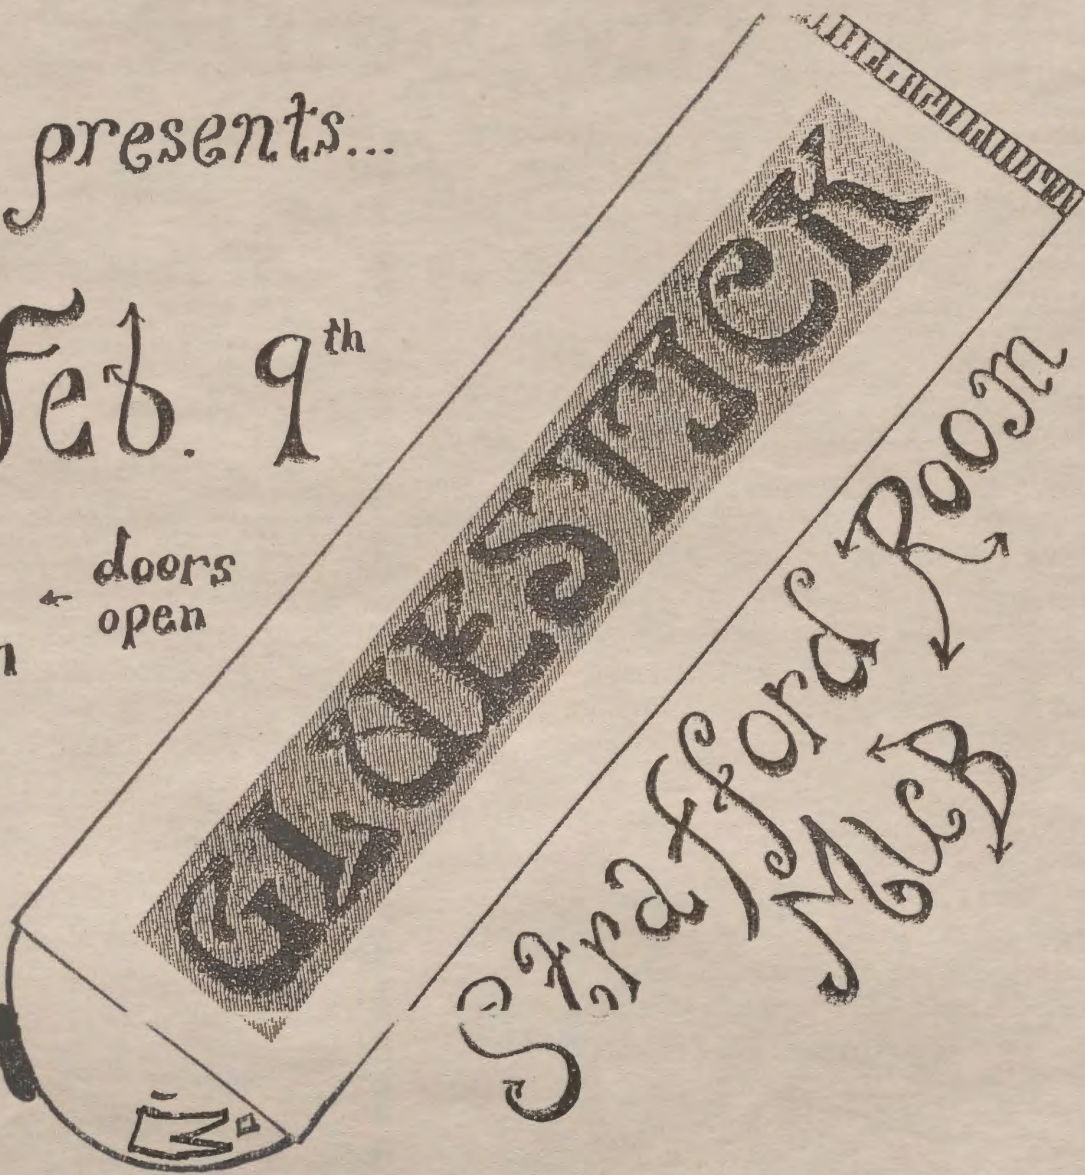 presents...
Feb. 9th
doors
open
GLUESTICK
Strafford Room
MUB